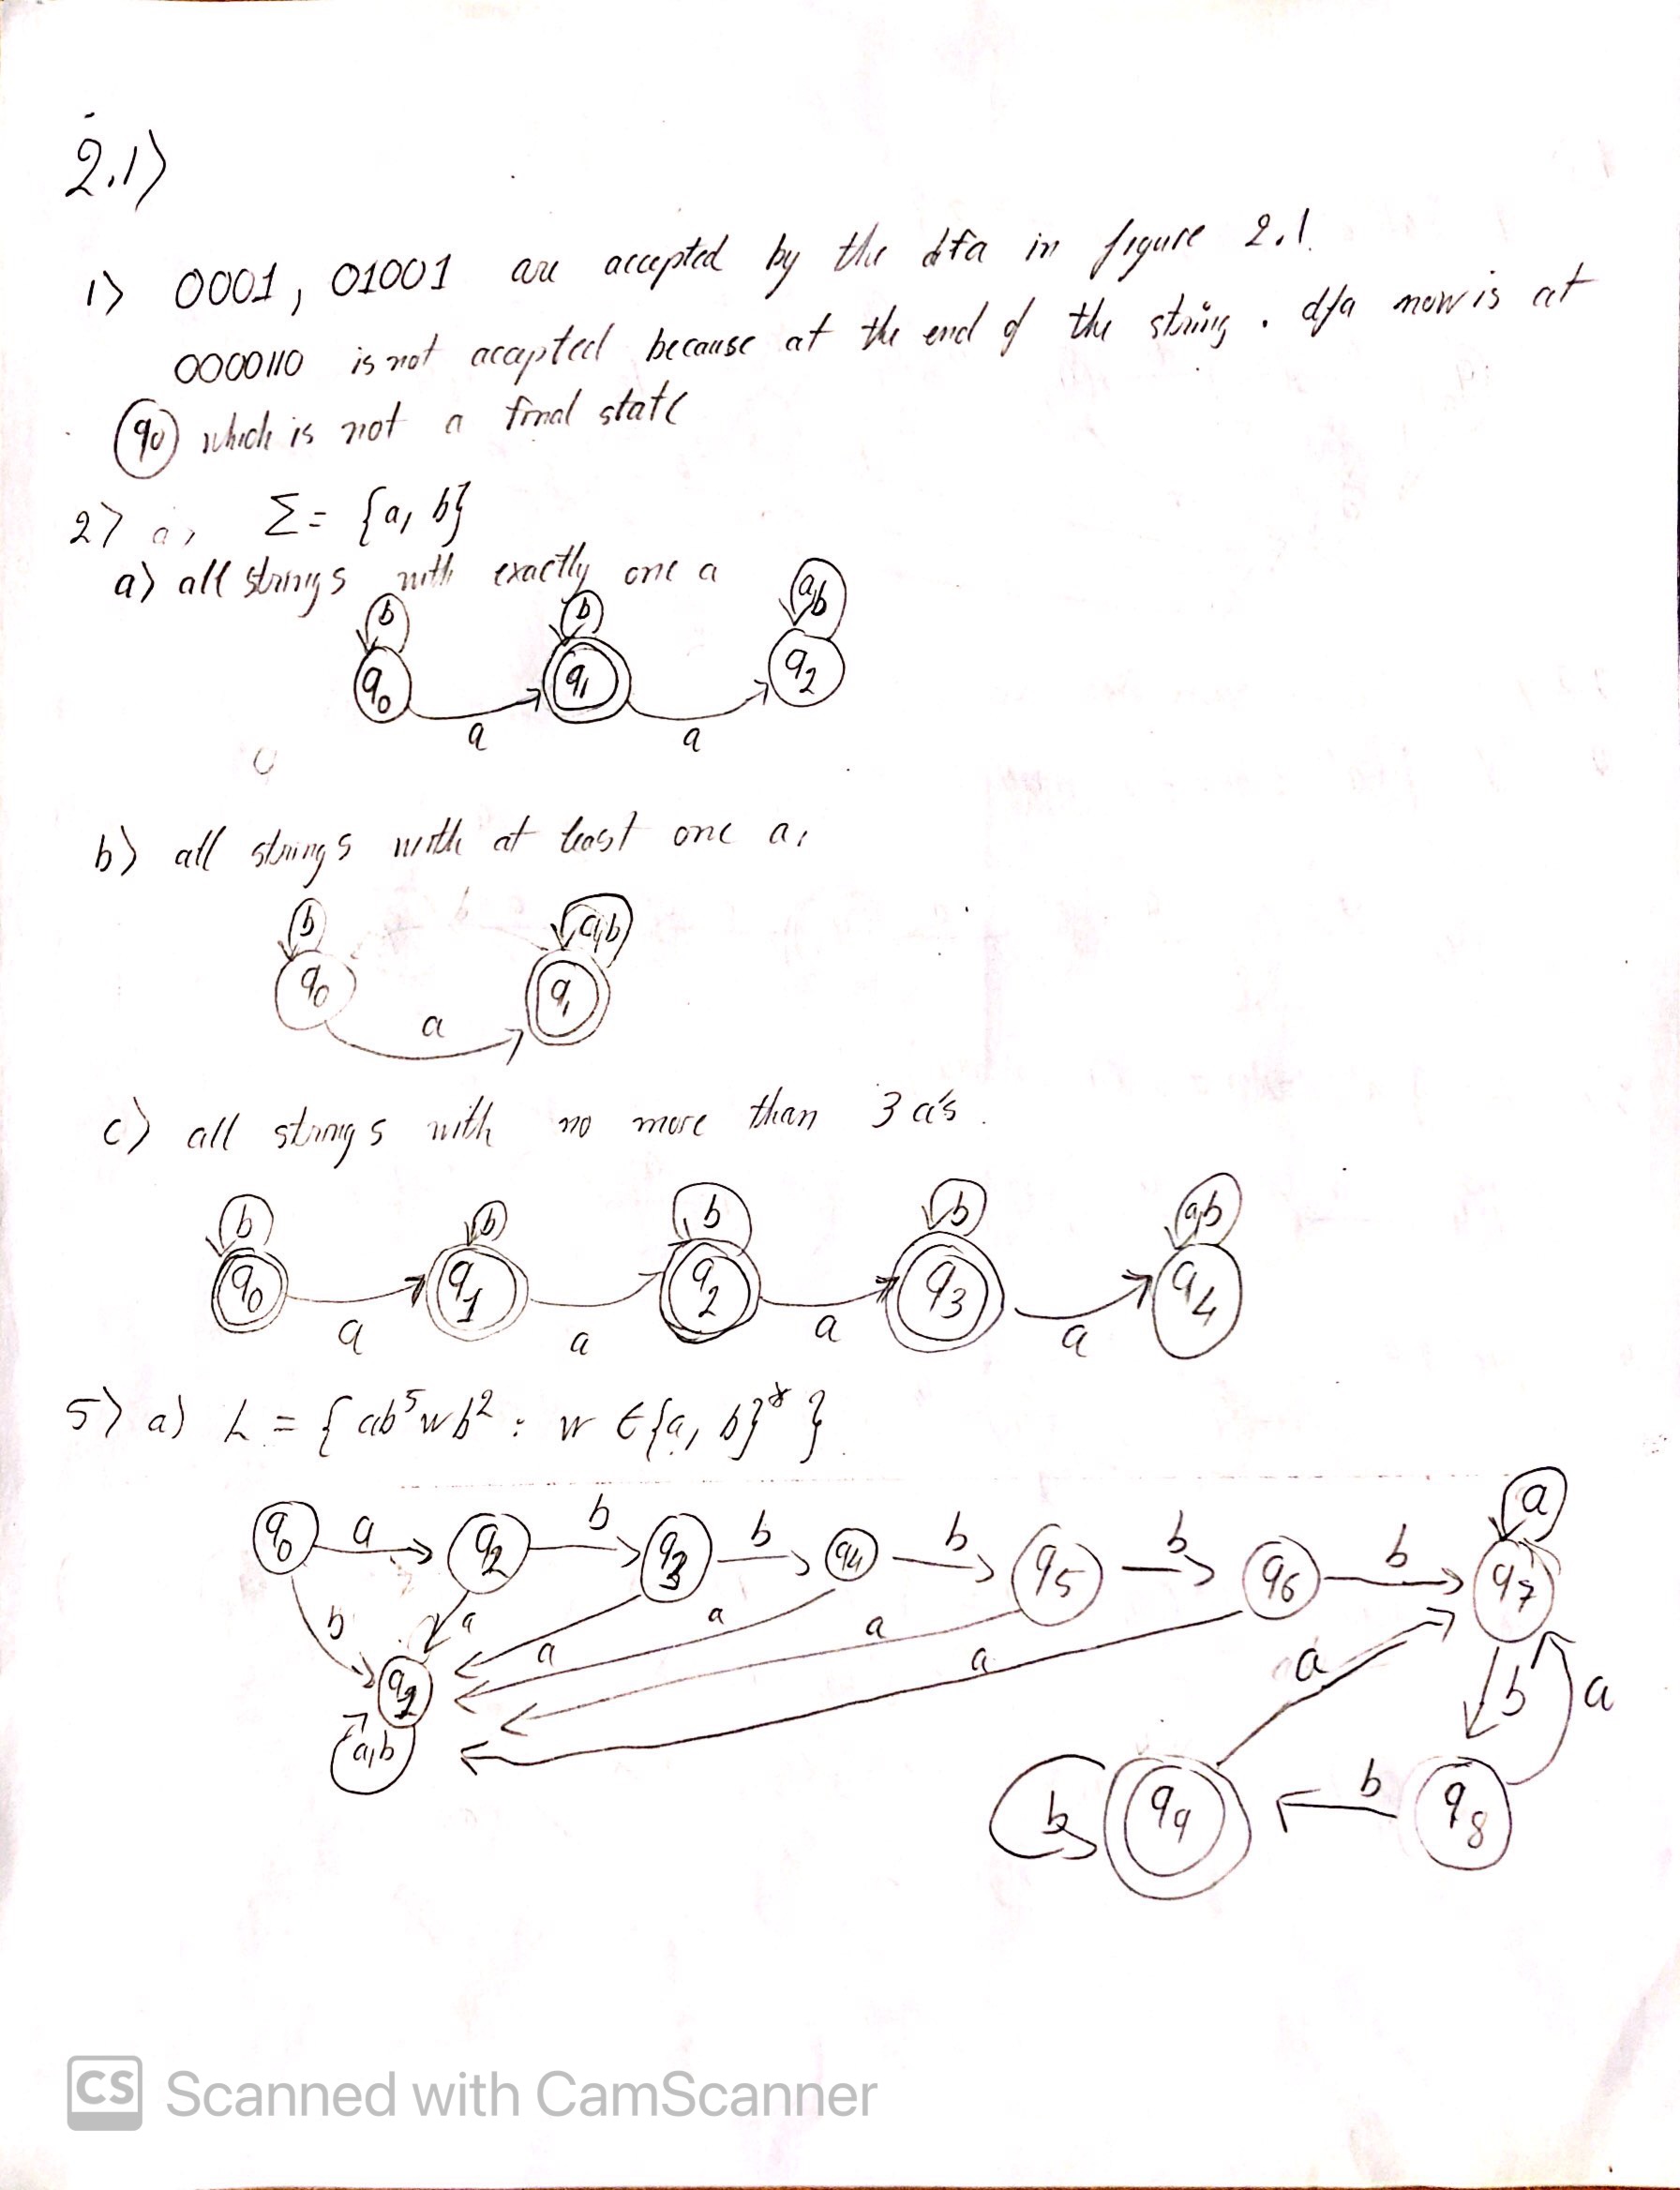 2.1)
1) 0001, 01001 are accepted by the dfa in figure 2.1.
0000110 is not accepted because at the end of the string. dfa now is at
q0 which is not a final state
2) a) Σ = {a, b}
a) all strings with exactly one a
b b a,b
q0 q1 q2
a a
b) all strings with at least one a,
b a,b
q0 q1
a
c) all strings with no more than 3 a's.
b b b b a,b
q0 q1 q2 q3 q4
a a a a
5) a) L = {ab⁵wb² : w ∈ {a, b}* }
a
q0 a q2 b q3 b q4 b q5 b q6 b q7
b a a a a a a b a
q1
a,b
b q9 b q8
CS Scanned with CamScanner